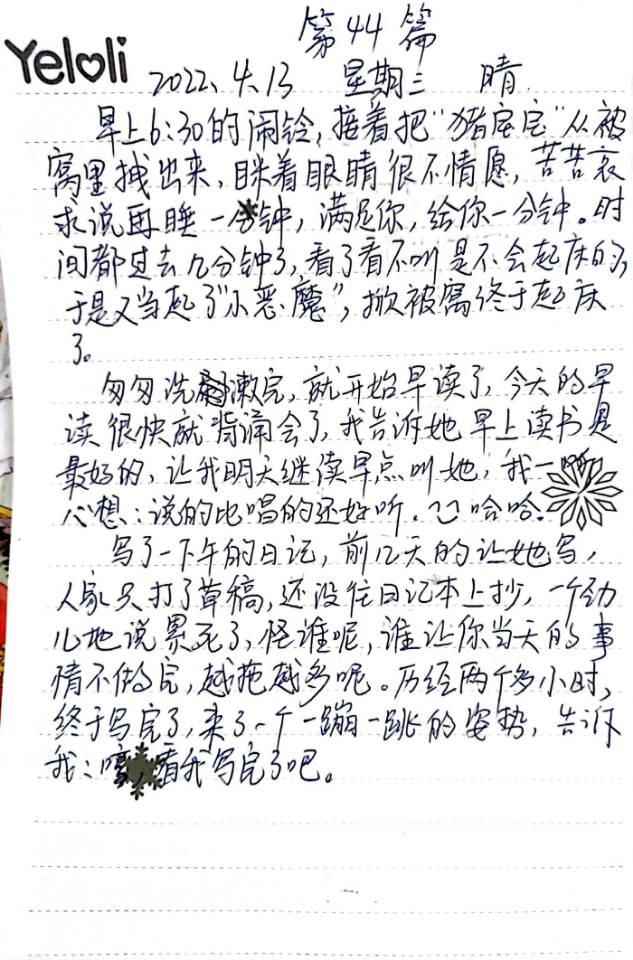 第44篇
Yeloli
2022.4.13 星期三 晴
早上6:30的闹铃,接着把“猪宝宝”从被
窝里拽出来,眯着眼睛很不情愿,苦苦哀
求说再睡一分钟,满足你,给你一分钟。时
间都过去几分钟了,看了看不叫是不会起床的,
于是又当起了“小恶魔”,掀被窝终于起床
了。
匆匆洗漱完,就开始早读了,今天的早
读很快就背诵会了,我告诉她早上读书是
最好的,让我明天继续早点叫她,我一听
心想:说的比唱的还好听.哈哈.
写了一下午的日记,前几天的让她写,
人家只打了草稿,还没往日记本上抄,一个劲
儿地说累死了,怪谁呢,谁让你当天的事
情不做完,越拖越多呢。历经两个多小时,
终于写完了,来了一个一蹦一跳的姿势,告诉
我:嘿,看我写完了吧。